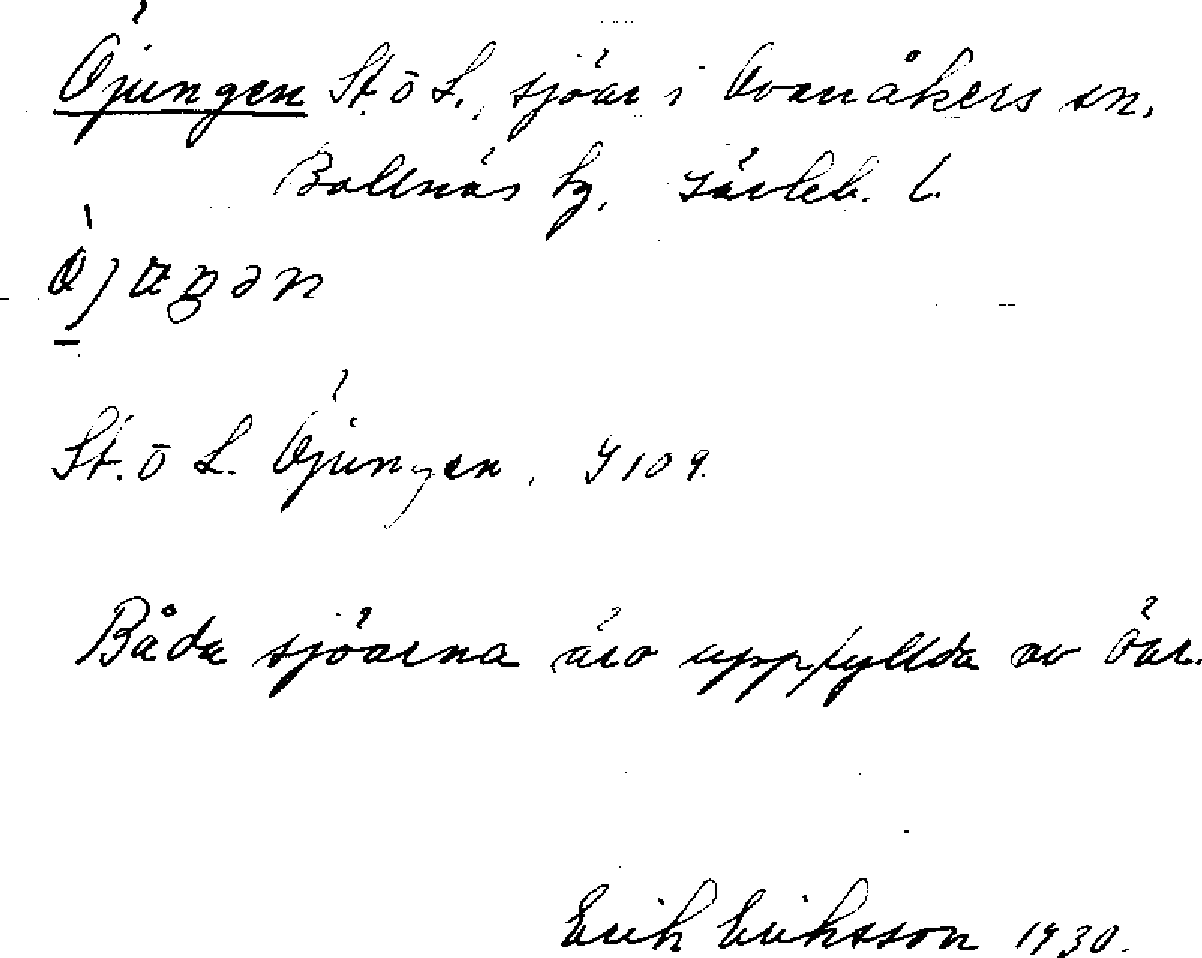 Öjungen St. o L., sjöar i Ovanåkers sn,
Bollnäs hg, Gävleb. l.
St. o L. Öjungen, J109.
Båda sjöarna äro uppfyllda av öar.
Erik Eriksson 1930.